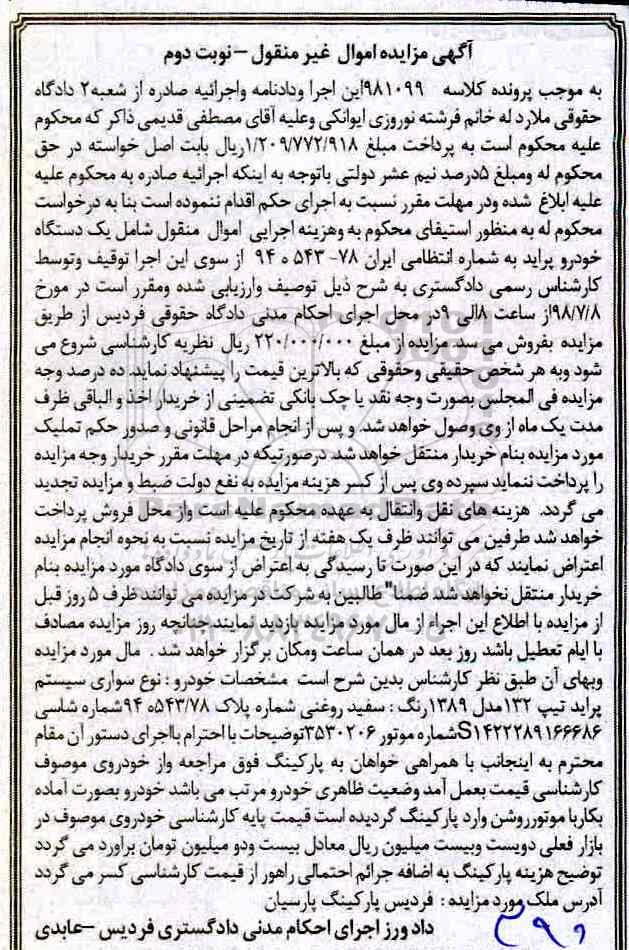 آگهی مزایده اموال غیر منقول – نوبت دوم
به موجب پرونده کلاسه ۹۸۱۰۹۹این اجرا ودادنامه واجرائیه صادره از شعبه۲ دادگاه
حقوقی ملارد له خانم فرشته نوروزی ایوانکی وعلیه آقای مصطفی قدیمی ذاکر که محکوم
علیه محکوم است به پرداخت مبلغ ۱/۲۰۹/۷۷۲/۹۱۸ریال بابت اصل خواسته در حق
محکوم له ومبلغ ۵درصد نیم عشر دولتی باتوجه به اینکه اجرائیه صادره به محکوم علیه
علیه ابلاغ شده ودر مهلت مقرر نسبت به اجرای حکم اقدام ننموده است بنا به درخواست
محکوم له به منظور استیفای محکوم به وهزینه اجرایی اموال منقول شامل یک دستگاه
خودرو پراید به شماره انتظامی ایران ۷۸- ۵۴۳ ه ۹۴ از سوی این اجرا توقیف وتوسط
کارشناس رسمی دادگستری به شرح ذیل توصیف وارزیابی شده ومقرر است در مورخ
۹۸/۷/۸از ساعت ۸الی ۹در محل اجرای احکام مدنی دادگاه حقوقی فردیس از طریق
مزایده بفروش می سد. مزایده از مبلغ ۲۲۰/۰۰۰/۰۰۰ ریال نظریه کارشناسی شروع می
شود وبه هر شخص حقیقی وحقوقی که بالاترین قیمت را پیشنهاد نماید. ده درصد وجه
مزایده فی المجلس بصورت وجه نقد یا چک بانکی تضمینی از خریدار اخذ و الباقی ظرف
مدت یک ماه از وی وصول خواهد شد. و پس از انجام مراحل قانونی و صدور حکم تملیک
مورد مزایده بنام خریدار منتقل خواهد شد. درصورتیکه در مهلت مقرر خریدار وجه مزایده
را پرداخت ننماید سپرده وی پس از کسر هزینه مزایده به نفع دولت ضبط و مزایده تجدید
می گردد. هزینه های نقل وانتقال به عهده محکوم علیه است واز محل فروش پرداخت
خواهد شد طرفین می توانند ظرف یک هفته از تاریخ مزایده نسبت به نحوه انجام مزایده
اعتراض نمایند که در این صورت تا رسیدگی به اعتراض از سوی دادگاه مورد مزایده بنام
خریدار منتقل نخواهد شد. ضمنا" طالبین به شرکت در مزایده می توانند ظرف ۵ روز قبل
از مزایده با اطلاع این اجراء از مال مورد مزایده بازدید نمایند.چنانچه روز مزایده مصادف
با ایام تعطیل باشد روز بعد در همان ساعت ومکان برگزار خواهد شد . مال مورد مزایده
وبهای آن طبق نظر کارشناس بدین شرح است مشخصات خودرو : نوع سواری سیستم
پراید تیپ ۱۳۲مدل ۱۳۸۹رنگ : سفید روغنی شماره پلاک ۵۴۳/۷۸ه ۹۴شماره شاسی
S۱۴۲۲۲۸۹۱۶۶۶۸۶شماره موتور ۳۵۳۰۲۰۶توضیحات با احترام بااجرای دستور آن مقام
محترم به اینجانب با همراهی خواهان به پارکینگ فوق مراجعه واز خودروی موصوف
کارشناسی قیمت بعمل آمد وضعیت ظاهری خودرو مرتب می باشد خودرو بصورت آماده
بکاربا موتورروشن وارد پارکینگ گردیده است قیمت پایه کارشناسی خودروی موصوف در
بازار فعلی دویست وبیست میلیون ریال معادل بیست ودو میلیون تومان براورد می گردد
توضیح هزینه پارکینگ به اضافه جرائم احتمالی راهور از قیمت کارشناسی کسر می گردد
آدرس ملک مورد مزایده : فردیس پارکینگ پارسیان
داد ورز اجرای احکام مدنی دادگستری فردیس –عابدی